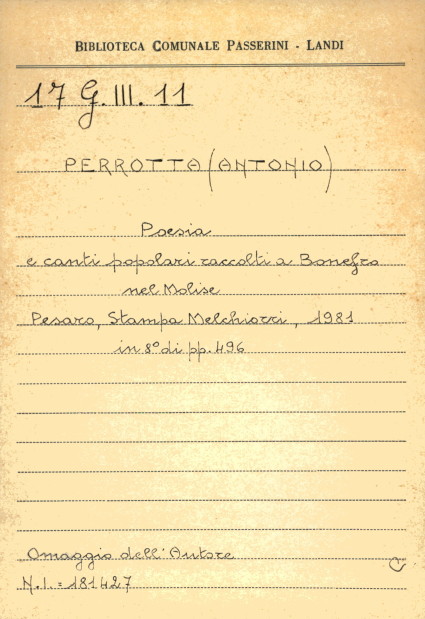 BIBLIOTECA COMUNALE PASSERINI - LANDI
17 G. III. 11
PERROTTA (ANTONIO)
Poesia
e canti popolari raccolti a Bonefro
nel Molise
Pesaro, Stampa Melchiorri, 1981
in 8° di pp. 496
Omaggio dell'Autore
C
N.I. = 181427